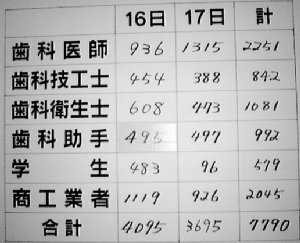 16日 17日 計
歯科医師 936 1315 2251
歯科技工士 454 388 842
歯科衛生士 608 473 1081
歯科助手 495 497 992
学生 483 96 579
商工業者 1119 926 2045
合計 4095 3695 7790